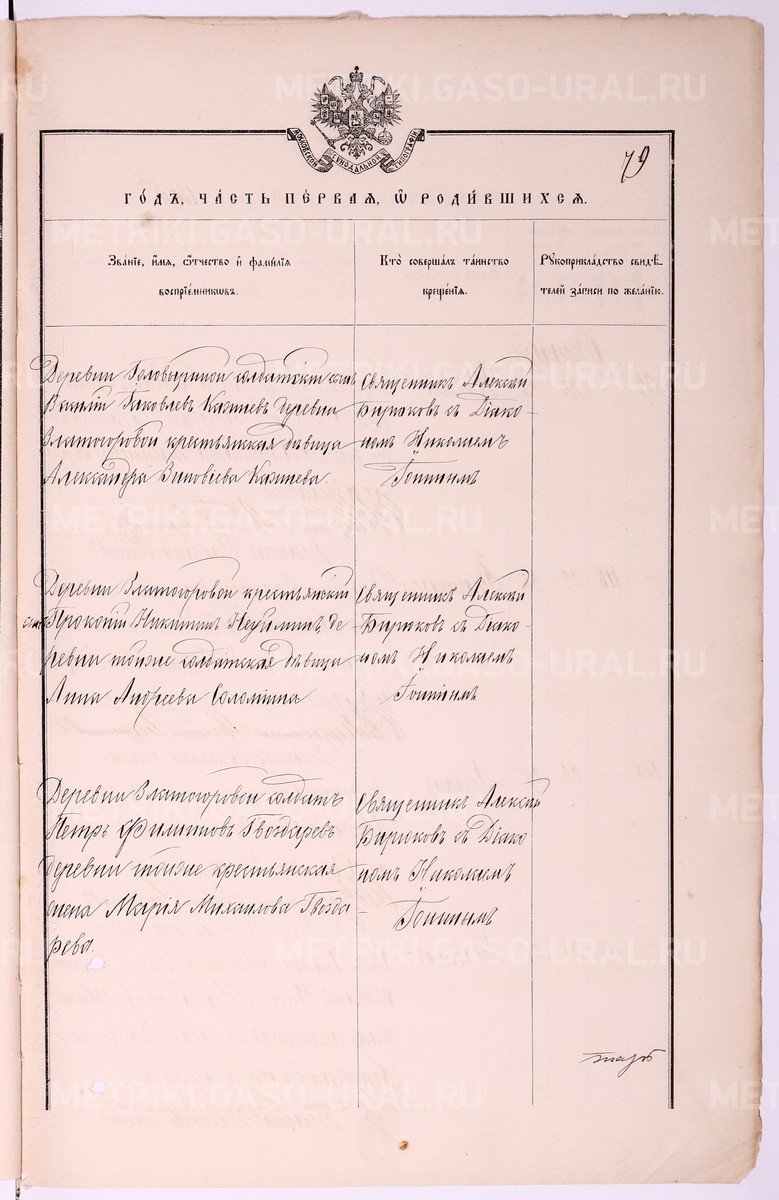 METRIKI.GASO-URAL.RU
МОСКОВСКОЙ СѴНОДАЛЬНОЙ ТИПОГРАФІИ
79
ГО́ДЪ, ЧА́СТЬ ПЕ́РВАѦ, Ѡ҆ РОДИ́ВШИХСѦ.
Зва́нїе, и҆́мѧ, ѻ҆́тчество и҆ фами́лїѧ
воспрїе́мникѡвъ.
Кто̀ соверша́лъ та́инство
креще́нїѧ.
Рꙋкоприкла́дство свидѣ́-
телей за́писи по жела́нїю.
Деревни Головыриной солдатскій сынъ
Василій Яковлевъ Казанцевъ деревни
Златогоровой крестьянская дѣвица
Александра Зиновіева
Священникъ Алексѣй
Бирюковъ съ Діако-
номъ Николаемъ
Деревни Златогоровой крестьянскій
сынъ Прокопій Никитинъ Неуйминъ, де-
ревни тойже солдатская дѣвица
Анна Андреева Соломина
Священникъ Алексѣй
Бирюковъ съ Діако-
номъ Николаемъ
Деревни Златогоровой солдатъ
Петръ Филиповъ Гвоздаревъ
деревни тойже крестьянская
жена Марія Михаилова Гвозда-
рева.
Священникъ Алексѣй
Бирюковъ съ Діако-
номъ Николаемъ